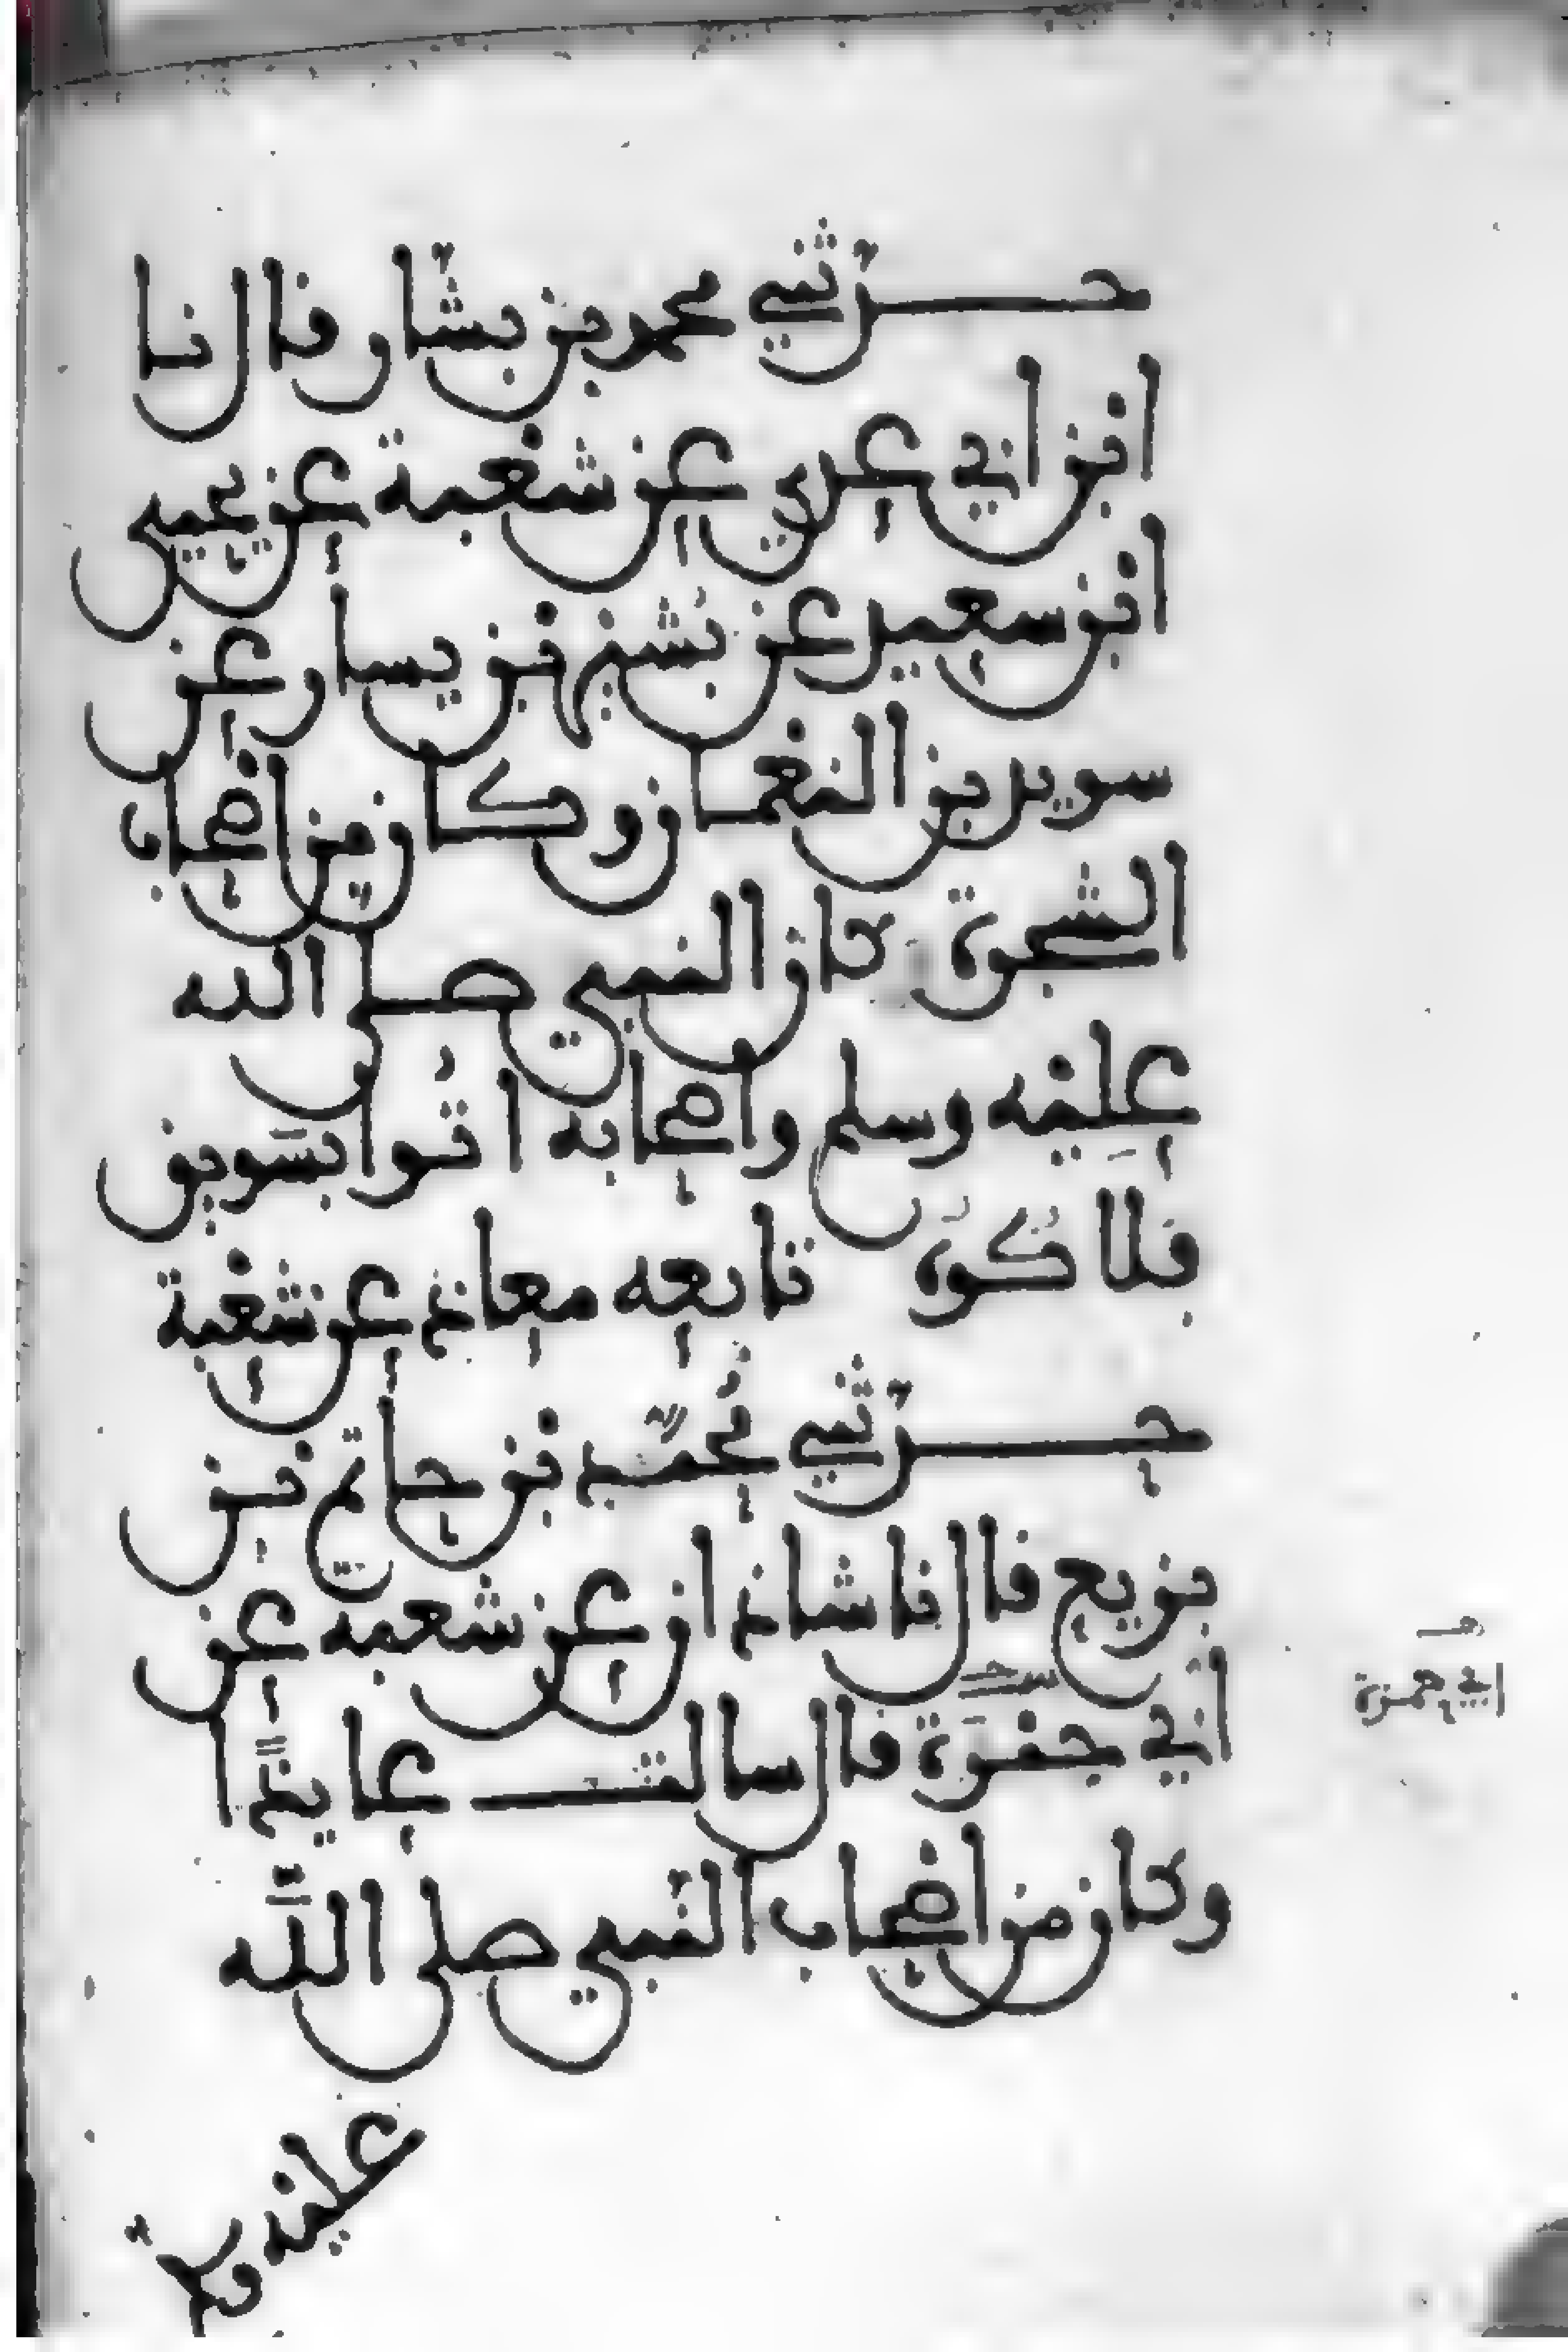 حدثني محمد بن بشار قال نا
ابن ابي عدي عن شعبة عن يحيى
ابن سعيد عن بشير بن يسار عن
سويد بن النعمان وكان من اصحاب
الشجرة كان النبي صلى الله
عليه وسلم واصحابه اتوا بسويق
فلاكوه تابعه معاذ عن شعبة
حدثني محمد بن حاتم بن
بزيع قال نا شاذان عن شعبه عن
ابي جمرة قال سالت عايذ ا
وكان من اصحاب النبي صلى الله
عليه و
ابي حمزة